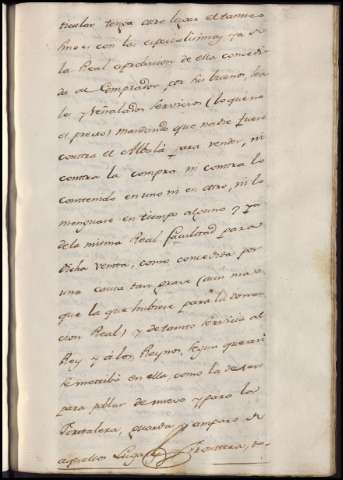 ticular tenga otro lugar el termi-
no; con las especialisimas, ya de
la Real aprobacion de ella concedi-
da al Comprador, por sus buenos, lea
les, y señalados servicios (lo que no
es preciso) mandando que nadie fuere
contra el Albalá para vender, ni
contra la compra ni contra lo
contenido en uno ni en otro, ni lo
menguare en tiempo alguno; y ya
de la misma Real facultad para
dicha venta, como concedida por
una causa tan grave (aun mas
que la que hubiese para la dona-
cion Real) y de tanto servicio al
Rey y á los Reynos, segun que asi
se en ella, como la de ser
para poblar de nuevo y para la
Fortaleza, guarda y amparo de
aquellos Lugares Frontera, de-